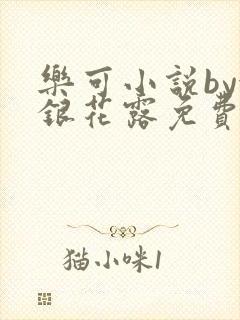 樂可小說by
銀花露免費
猫小咪1